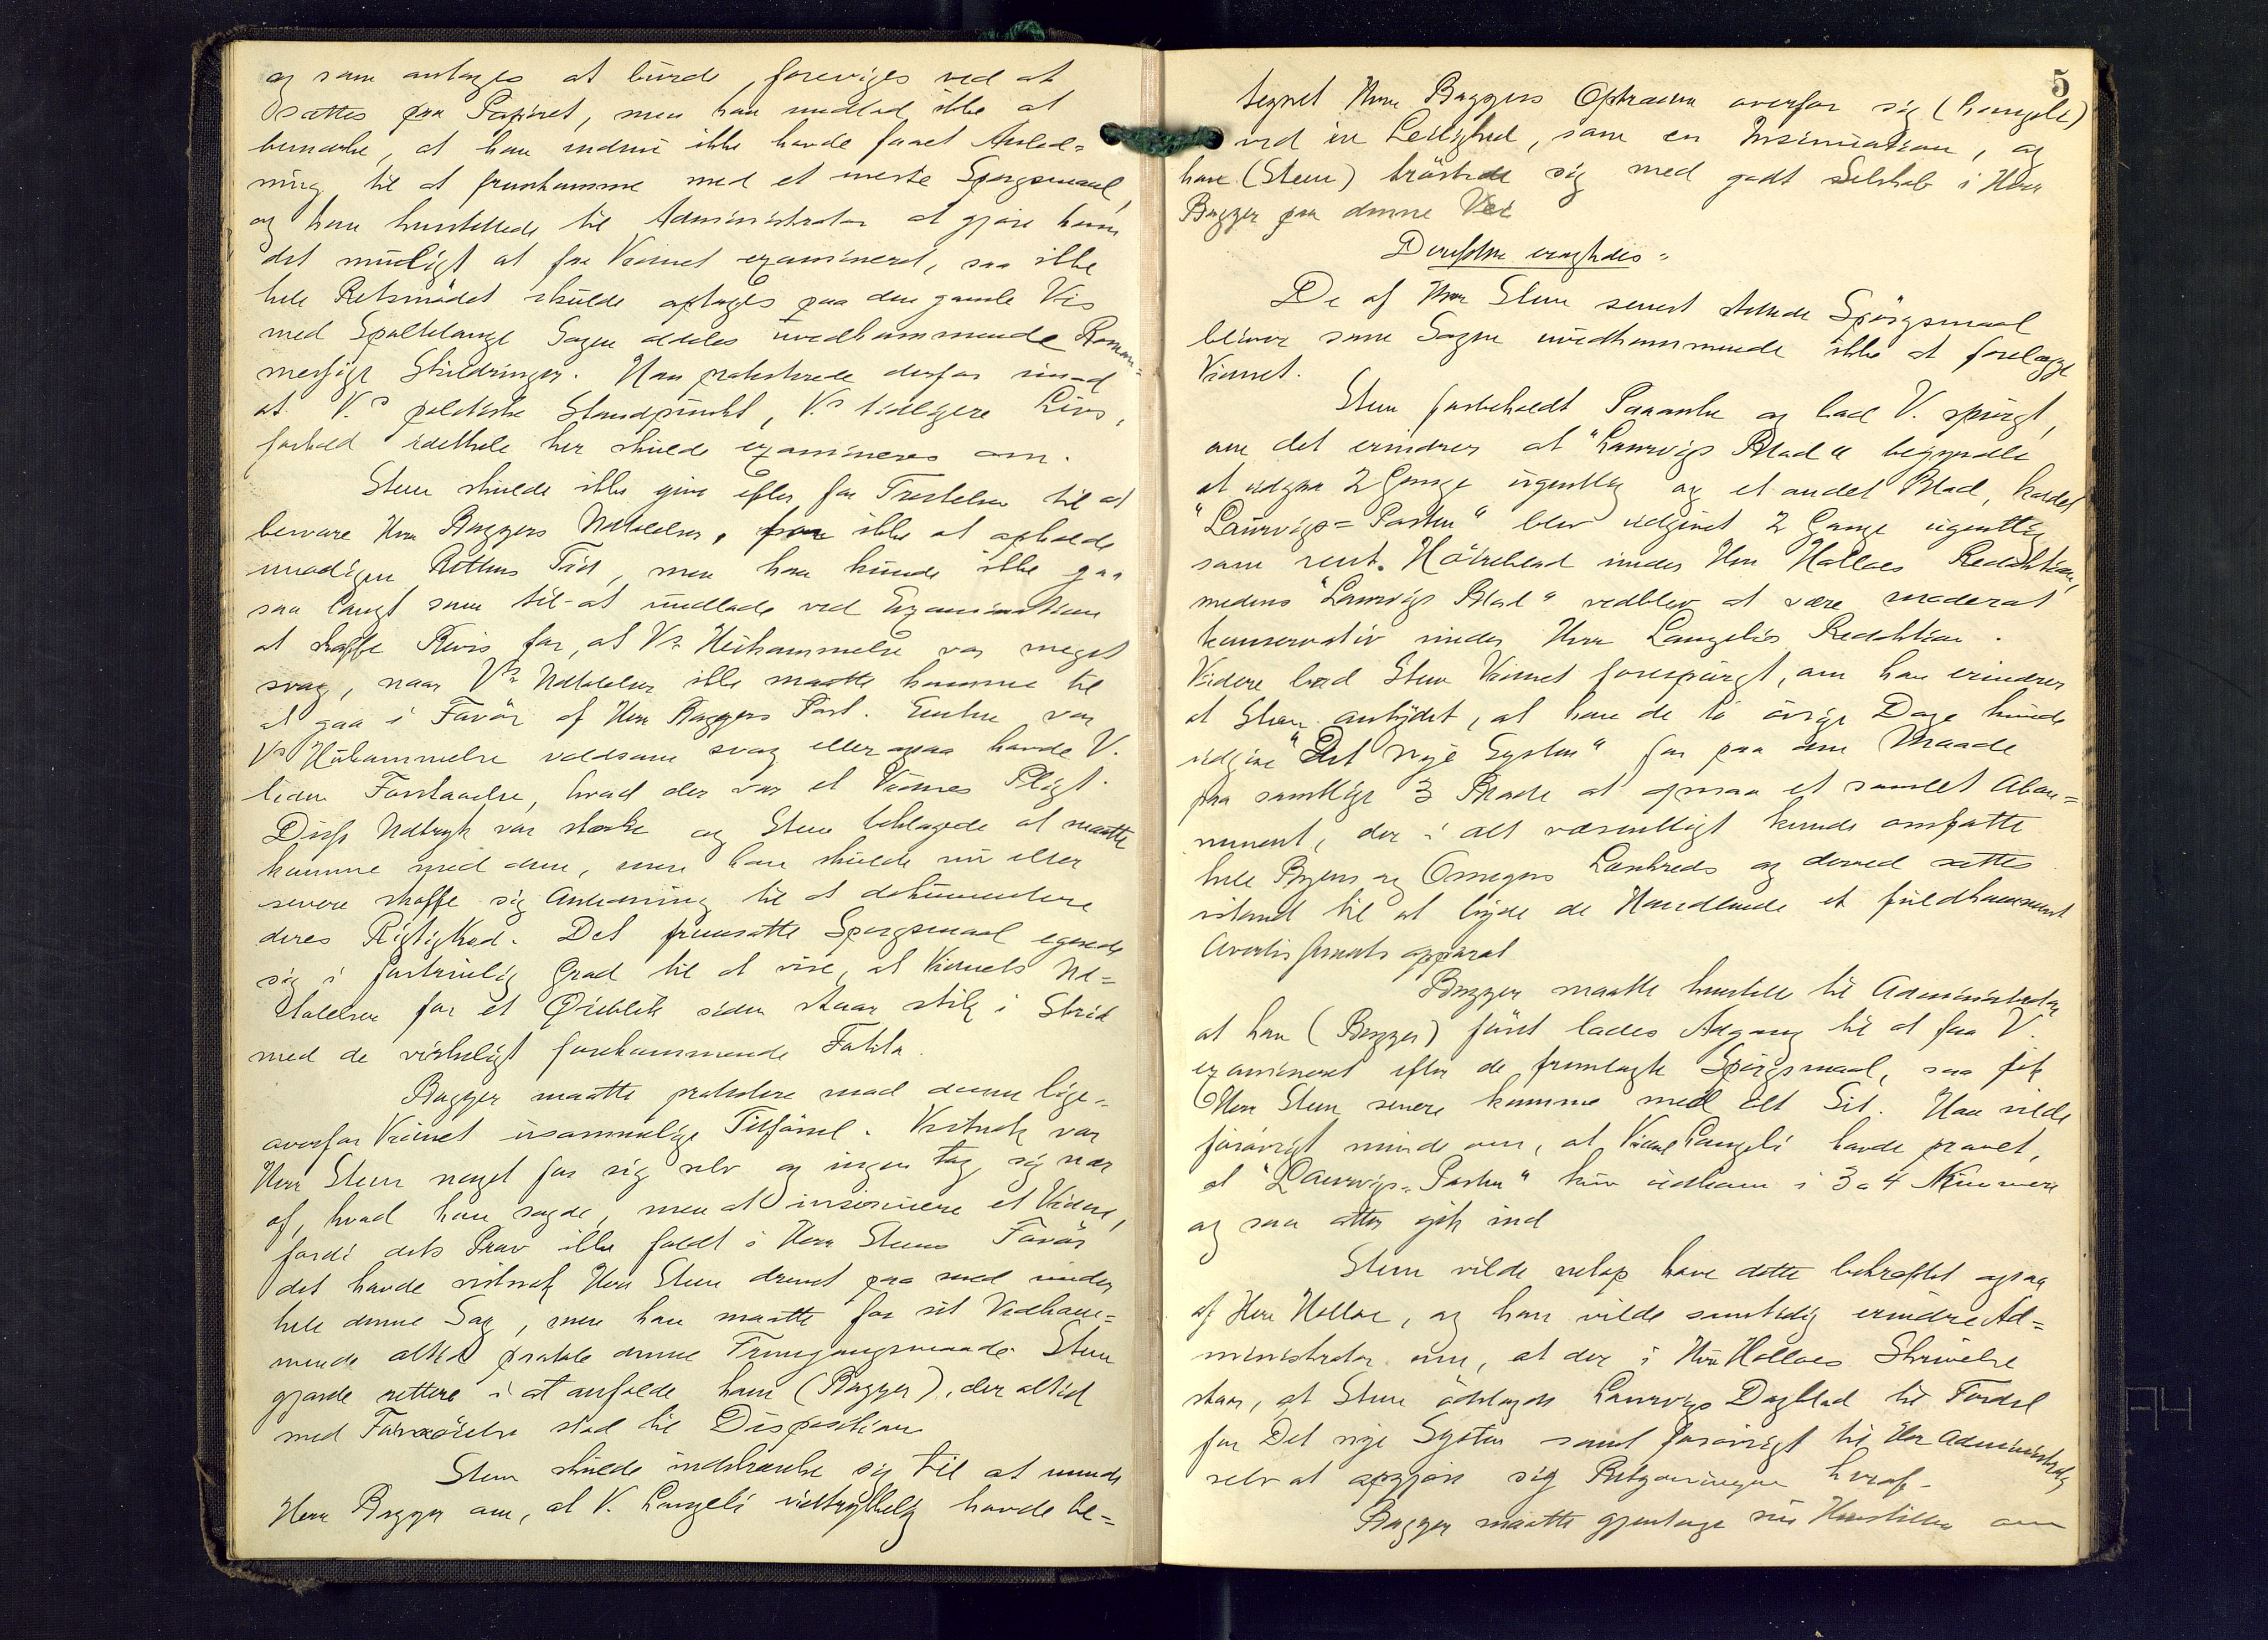 og som antages at burde foreviges ved at
sættes paa Papiret, men han undlod ikke at
bemærke, at han endnu ikke havde faaet Anled=
ning til at fremkomme med et eneste Spørgsmaal,
og han henstillede til Administrator at gjøre ham
det muligt at faa Vidnet examineret, saa ikke
hele Retsmødet skulde optages paa den gamle Vis
med Spaltelange Sagen aldeles uvedkommende Roman=
mæssige Skildringer. Han protesterede derfor imod
at V.s politiske Standpunkt, V.s tidligere Livs,
forhold idethele her skulde examineres om.
Steen skulde ikke give efter for Fristelsen til at
besvare Herr Baggers Udtalelser, for ikke at opholde
unødigen Rettens Tid, men han kunde ikke gaa
saa langt som til at undlade ved Examination
at skaffe Bevis for, at V.s Hukommelse var meget
svag, naar V.s Udtalelser ikke maatte komme til
at gaa i Favør af Herr Baggers Part. Enten var
V.s Hukommelse voldsom svag eller ogsaa havde V.
liden Forstaaelse, hvad der var et Vidnes Pligt.
Disse Udtryk var stærke og Steen beklagede at maatte
komme med dem, men han skulde nu eller
senere skaffe sig Anledning til at dokumentere
deres Rigtighed. Det fremsatte Spørgsmaal egnede
sig i fortrinlig Grad til at vise, at Vidnets Ud=
talelser for et Øieblik siden staar stik i Strid
med de virkeligt forekommende Fakta.
Bagger maatte protestere mod denne lige-
overfor Vidnet usømmelige Tilførsel. Vistnok var
Herr Steen noget for sig selv og ingen tog sig nær
af, hvad han sagde, men at insinuere et Vidne,
fordi dets Prov ikke faldt i Herr Steens Favør
det havde vistnok Herr Steen drevet paa med under
hele denne Sag, men han maatte for sit Vedkom=
mende altid paatale denne Fremgangsmaade. Steen
gjorde rettere i at anfalde ham (Bagger), der altid
med Fornøielse stod til Disposition
Steen skulde indskrænke sig til at minde
Herr Bagger om, at V. Langeli udtrykkelig havde be=
5
tegnet Herr Baggers Optræden overfor sig (Langeli)
ved en Leilighed, som en Insinuation, og
han (Steen) trøstede sig med godt Selskab i Herr
Bagger paa denne Vei
Dereftter eragtedes:
De af Herr Steen senest stillede Spørgsmaal
bliver som Sagen uvedkommende ikke at forelægge
Vidnet.
Steen forbeholdt Paaanke og bad V. spurgt,
om det erindrer at "Laurvigs Blad" begyndte
at udgaa 2 Gange ugentlig og et andet Blad, kaldet
"Laurvigs=Posten" blev udgivet 2 Gange ugentlig
som rent Høireblad under Herr Hallaes Redaktion,
medens "Laurvigs Blad" vedblev at være moderat
konservativ under Herr Langelis Redaktion.
Videre bad Steen Vidnet forespurgt, om han erindrer
at Steen antydet, at han de to øvrige Dage kunde
udgive "Det nye System" for paa den Maade
paa samtlige 3 Blade at opnaa et samlet Abon=
nement, der i alt væsentligt kunde omfatte
hele Byens og Omegns Læsekreds og derved sættes
istand til at byde de Handlende et fuldkomment
Avertissements apparat
Bagger maatte henstille til Administrator
at han (Bagger) først lades Adgang til at faa V.
examineret efter de fremlagte Spørgsmaal, saa fik
Herr Steen senere komme med alt Sit. Han vilde
forøvrigt minde om, at Vidnet Langeli havde provet,
at "Laurvigs-Posten" kun udkom i 3 a 4 Numere
og saa atter gik ind
Steen vilde netop have dette bekræftet ogsaa
af Herr Hallae, og han vilde samtidig erindre Ad=
ministrator om, at der i Herr Hallaes Skrivelse
staar, at Steen ødelagde Laurvigs Dagblad til Fordel
for Det nye System samt forøvrigt til Herr Administrator
selv at opgjøre sig Betydningen heraf.
Bagger maatte gjentage sin Henstillen om